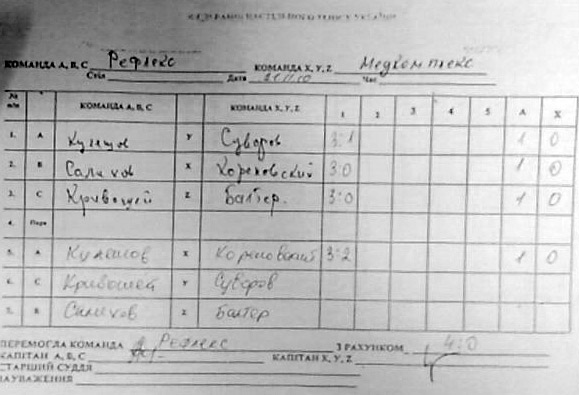 ФЕДЕРАЦІЯ НАСТІЛЬНОГО ТЕНІСУ УКРАЇНИ
КОМАНДА А, В, С Рефлекс КОМАНДА X, Y, Z Медкомплекс
Стіл Дата Час
№ п/п КОМАНДА А, В, С КОМАНДА X, Y, Z 1 2 3 4 5 А X
1. А Y Суворов 3:1 1 0
2. В Салихов X Кореновский 3:0 1 0
3. С Кривошей Z Балтер. 3:0 1 0
4. Пара
5. А X Кореновский 3:2 1 0
6. С Кривошей Y Суворов
7. В Салихов Z Балтер
ПЕРЕМОГЛА КОМАНДА Рефлекс З РАХУНКОМ 4:0
КАПІТАН А, В, С КАПІТАН X, Y, Z
СТАРШИЙ СУДДЯ
ЗАУВАЖЕННЯ